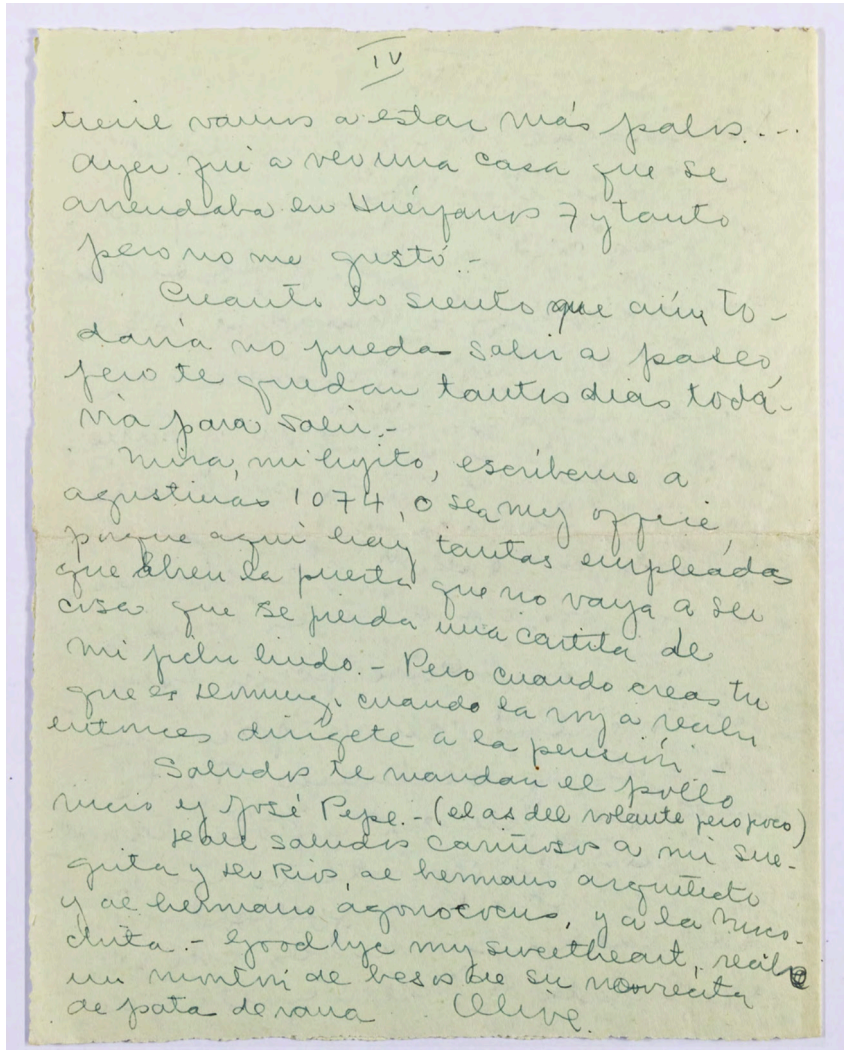 IV
tiene vamos a estar más palos...
Ayer fui a ver una casa que se
arrendaba en Huérfanos 7 y tanto
pero no me gustó.-
Cuanto lo siento que aún to-
davía no puedas salir a paseo,
pero te quedan tantos dias toda-
vía para salir.-
Mira, mi hijito, escríbeme a
Agustinas 1074, o sea my office,
porque aquí hay tantas empleadas
que abren la puerta que no vaya a ser
cosa que se pierda una cartita de
mi pichu lindo.- Pero cuando creas tu
que es Doming. cuando la voy a recibir
entonces dirígete a la pensión -
Saludos te mandan el pollo
rucio y José Pepe.- (el as del volante pero poco)
Dale saludos cariñosos a mi sue-
grita y Del Rios, al hermano arquitecto
y al hermano agonococus, y a la
chita.- Goodbye my sweetheart, recibe
un montón de besos de su
de pata de rana Olive.